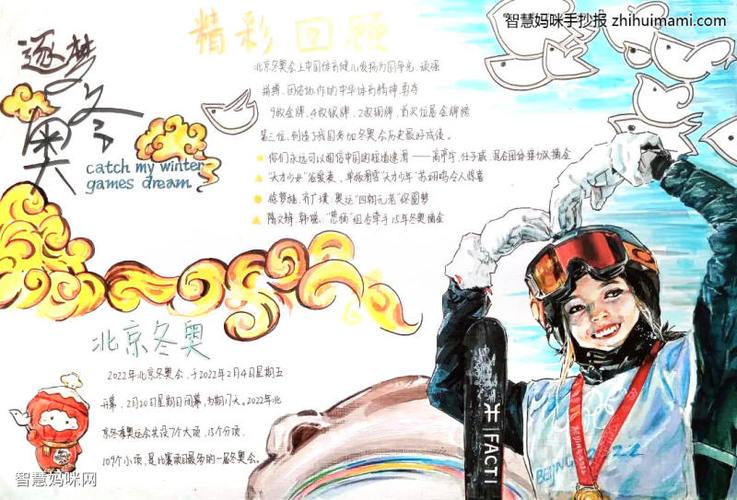 智慧妈咪手抄报 zhihuimami.com
逐梦
冬奥
catch my winter
games dream.
精彩回顾
北京冬奥会上中国体育健儿发扬为国争光、顽强
拼搏、团结协作的中华体育精神,勇夺
9枚金牌、4枚银牌、2枚铜牌,首次位居金牌榜
第三位,创造了我国参加冬奥会历史最好成绩。
你们永远可以相信中国的短道速滑——高亭宇、任子威、混合团体接力队摘金
"天才少女"谷爱凌、单板滑雪"天才少年"苏翊鸣令人惊喜
徐梦桃、齐广璞:奥运"四朝元老"终圆梦
隋文静、韩聪:"葱桶"组合牵手15年冬奥摘金
北京冬奥
2022年北京冬奥会,于2022年2月4日星期五
开幕,2月20日星期日闭幕,为期17天。2022年北
京冬季奥运会共设7个大项,15个分项,
109个小项,是比赛项目最多的一届冬奥会。
FACTI
BEIJING 2022
智慧妈咪网